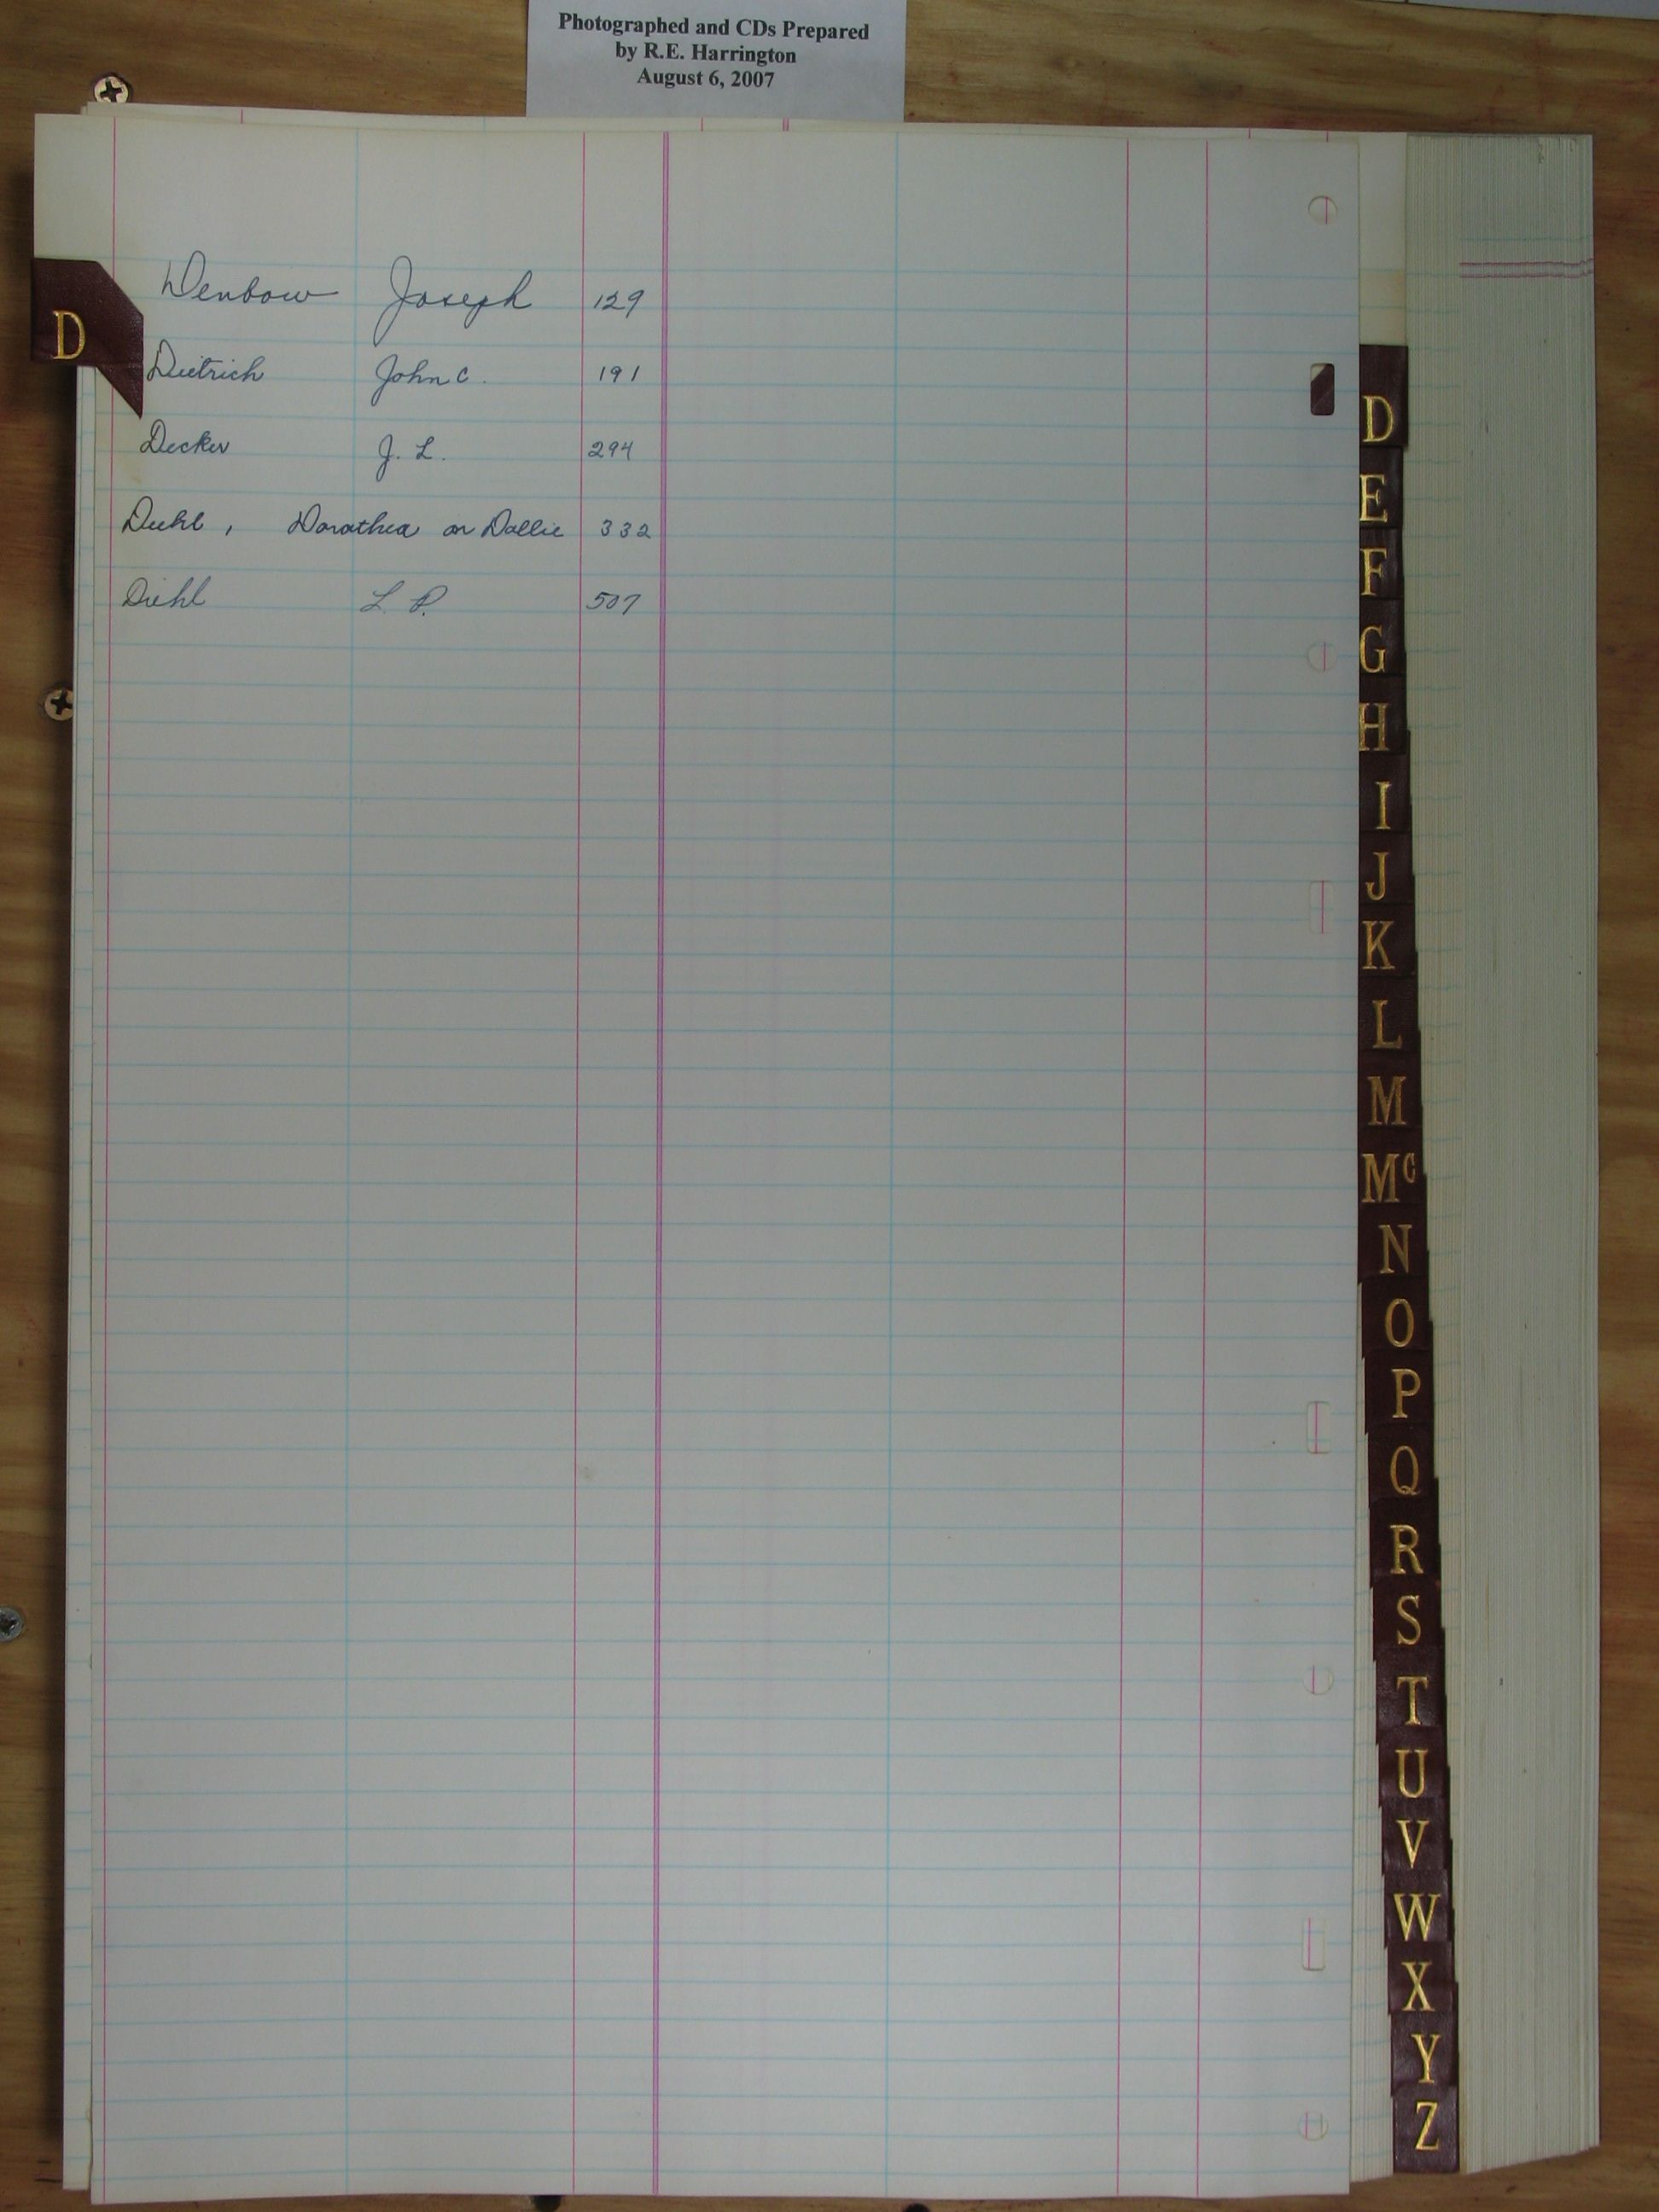 Photographed and CDs Prepared
by R.E. Harrington
August 6, 2007
Denbow Joseph 129
D
Dietrich John C. 191
Decker J. L. 294
Diehl, Dorothea or Dollie 332
Diehl L. P. 507
D
E
F
G
H
I
J
K
L
M
Mc
N
O
P
Q
R
S
T
U
V
W
X
Y
Z